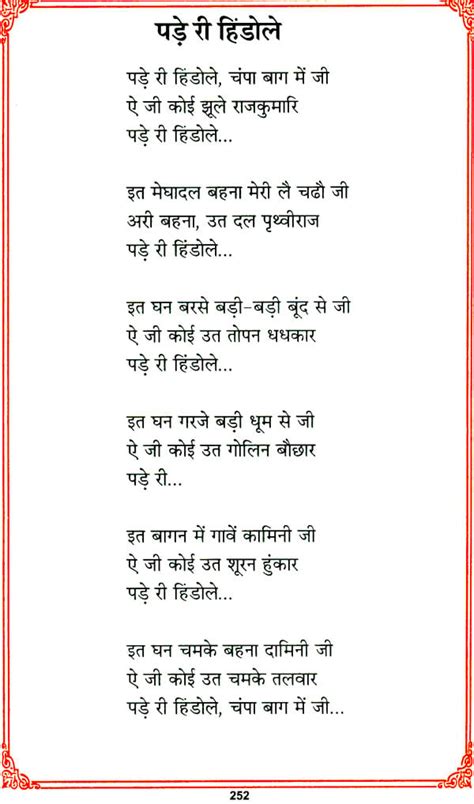 पड़े री हिंडोले
पड़े री हिंडोले, चंपा बाग में जी
ऐ जी कोई झूले राजकुमारि
पड़े री हिंडोले...
इत मेघादल बहना मेरी लै चढौ जी
अरी बहना, उत दल पृथ्वीराज
पड़े री हिंडोले...
इत घन बरसे बड़ी-बड़ी बूंद से जी
ऐ जी कोई उत तोपन धधकार
पड़े री हिंडोले...
इत घन गरजे बड़ी धूम से जी
ऐ जी कोई उत गोलिन बौछार
पड़े री...
इत बागन में गावें कामिनी जी
ऐ जी कोई उत शूरन हुंकार
पड़े री हिंडोले...
इत घन चमके बहना दामिनी जी
ऐ जी कोई उत चमके तलवार
पड़े री हिंडोले, चंपा बाग में जी...
252